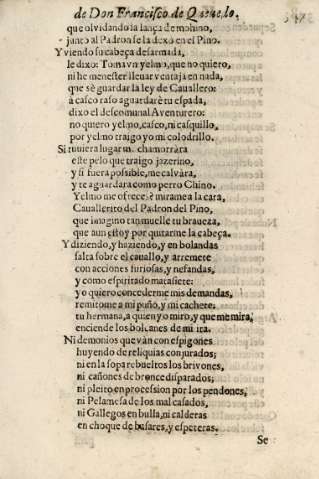 de Don Francisco de Queuedo.
que oluidando la lança de mohino,
junto al Padron se la dexò en el Pino.
Y viendo su cabeça desarmada,
le dixo: Toma vn yelmo, que no quiero,
ni he menester lleuar ventaja en nada,
que sè guardar la ley de Cauallero:
à casco raso aguardarè tu espada,
dixo el descomunal Auenturero:
no quiero yelmo, casco, ni casquillo,
por yelmo traigo yo mi colodrillo.
Si tuuiera lugar me chamorràra
este pelo que traigo jazerino,
y si fuera possible, me calvàra,
y te aguardara como perro Chino.
Yelmo me ofreces? mirame la cara,
Cauallerito del Padron del Pino,
que imagino tan muelle tu braueza,
que aun estoy por quitarme la cabeça.
Y diziendo, y haziendo, y en bolandas
salta sobre el cauallo, y arremete
con acciones furiosas, y nefandas,
y como espiritado matasiete:
y o quiero concederme mis demandas,
remitome à mi puño, y mi cachete:
tu hermana, a quien yo miro, y que me mira,
enciende los bolcanes de mi ira.
Ni demonios que vàn con espigones
huyendo de reliquias conjurados;
ni en la sopa rebueltos los brivones,
ni cañones de bronce disparados;
ni pleito en procession por los pendones,
ni Pelamesa de los mal casados,
ni Gallegos en bulla, ni calderas
en choque de basares, y espeteras.
Se